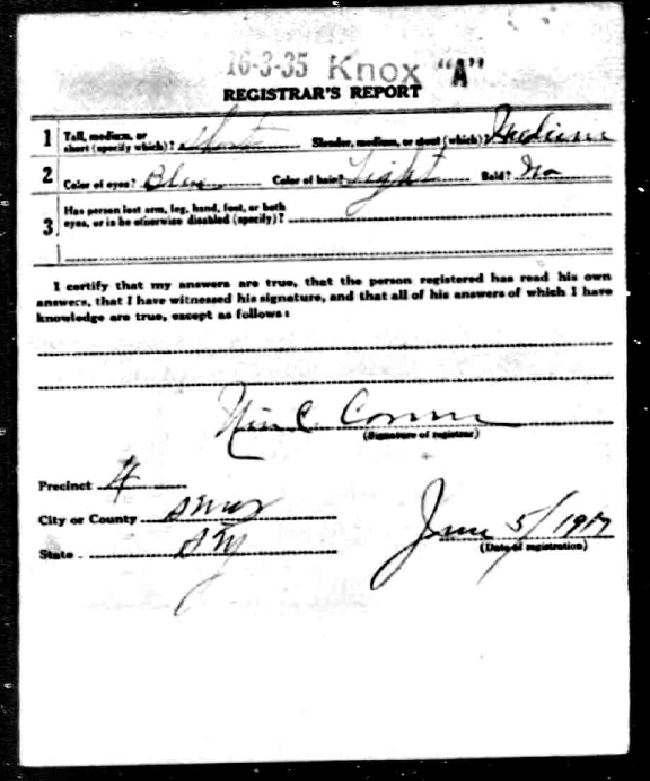 16-3-35 Knox "A"
REGISTRAR'S REPORT
1 Tall, medium, or short (specify which)? Short Slender, medium, or stout (which)? Medium
2 Color of eyes? Blue Color of hair? Light Bald? No
3 Has person lost arm, leg, hand, foot, or both
eyes, or is he otherwise disabled (specify)?
I certify that my answers are true, that the person registered has read his own
answers, that I have witnessed his signature, and that all of his answers of which I have
knowledge are true, except as follows:
(Signature of registrar)
Precinct 4
City or County
State
June 5/1917
(Date of registration)